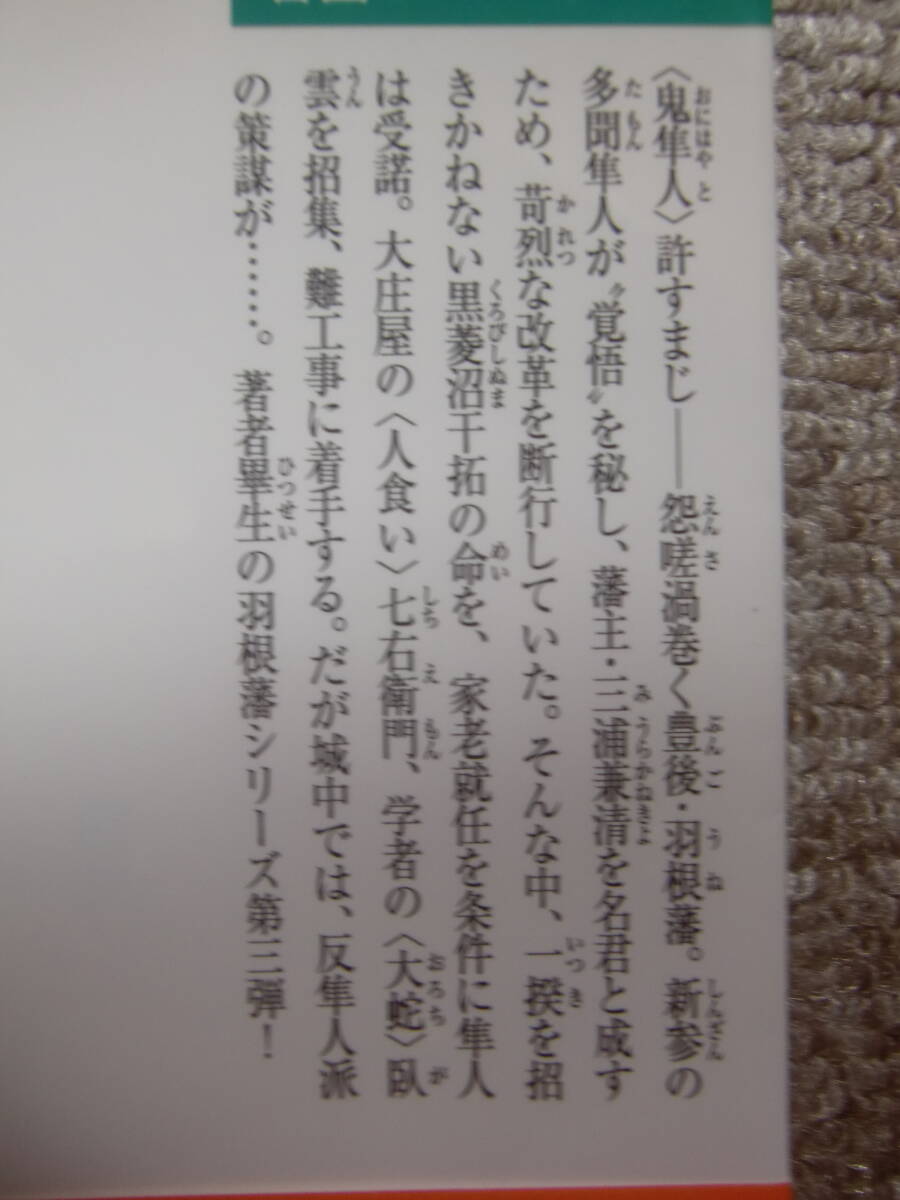 〈鬼隼人〉許すまじ――怨嗟渦巻く豊後・羽根藩。新参の
多聞隼人が〝覚悟〟を秘し、藩主・三浦兼清を名君と成す
ため、苛烈な改革を断行していた。そんな中、一揆を招
きかねない黒菱沼干拓の命を、家老就任を条件に隼人
は受諾。大庄屋の〈人食い〉七右衛門、学者の〈大蛇〉臥
雲を招集、難工事に着手する。だが城中では、反隼人派
の策謀が……。著者畢生の羽根藩シリーズ第三弾！